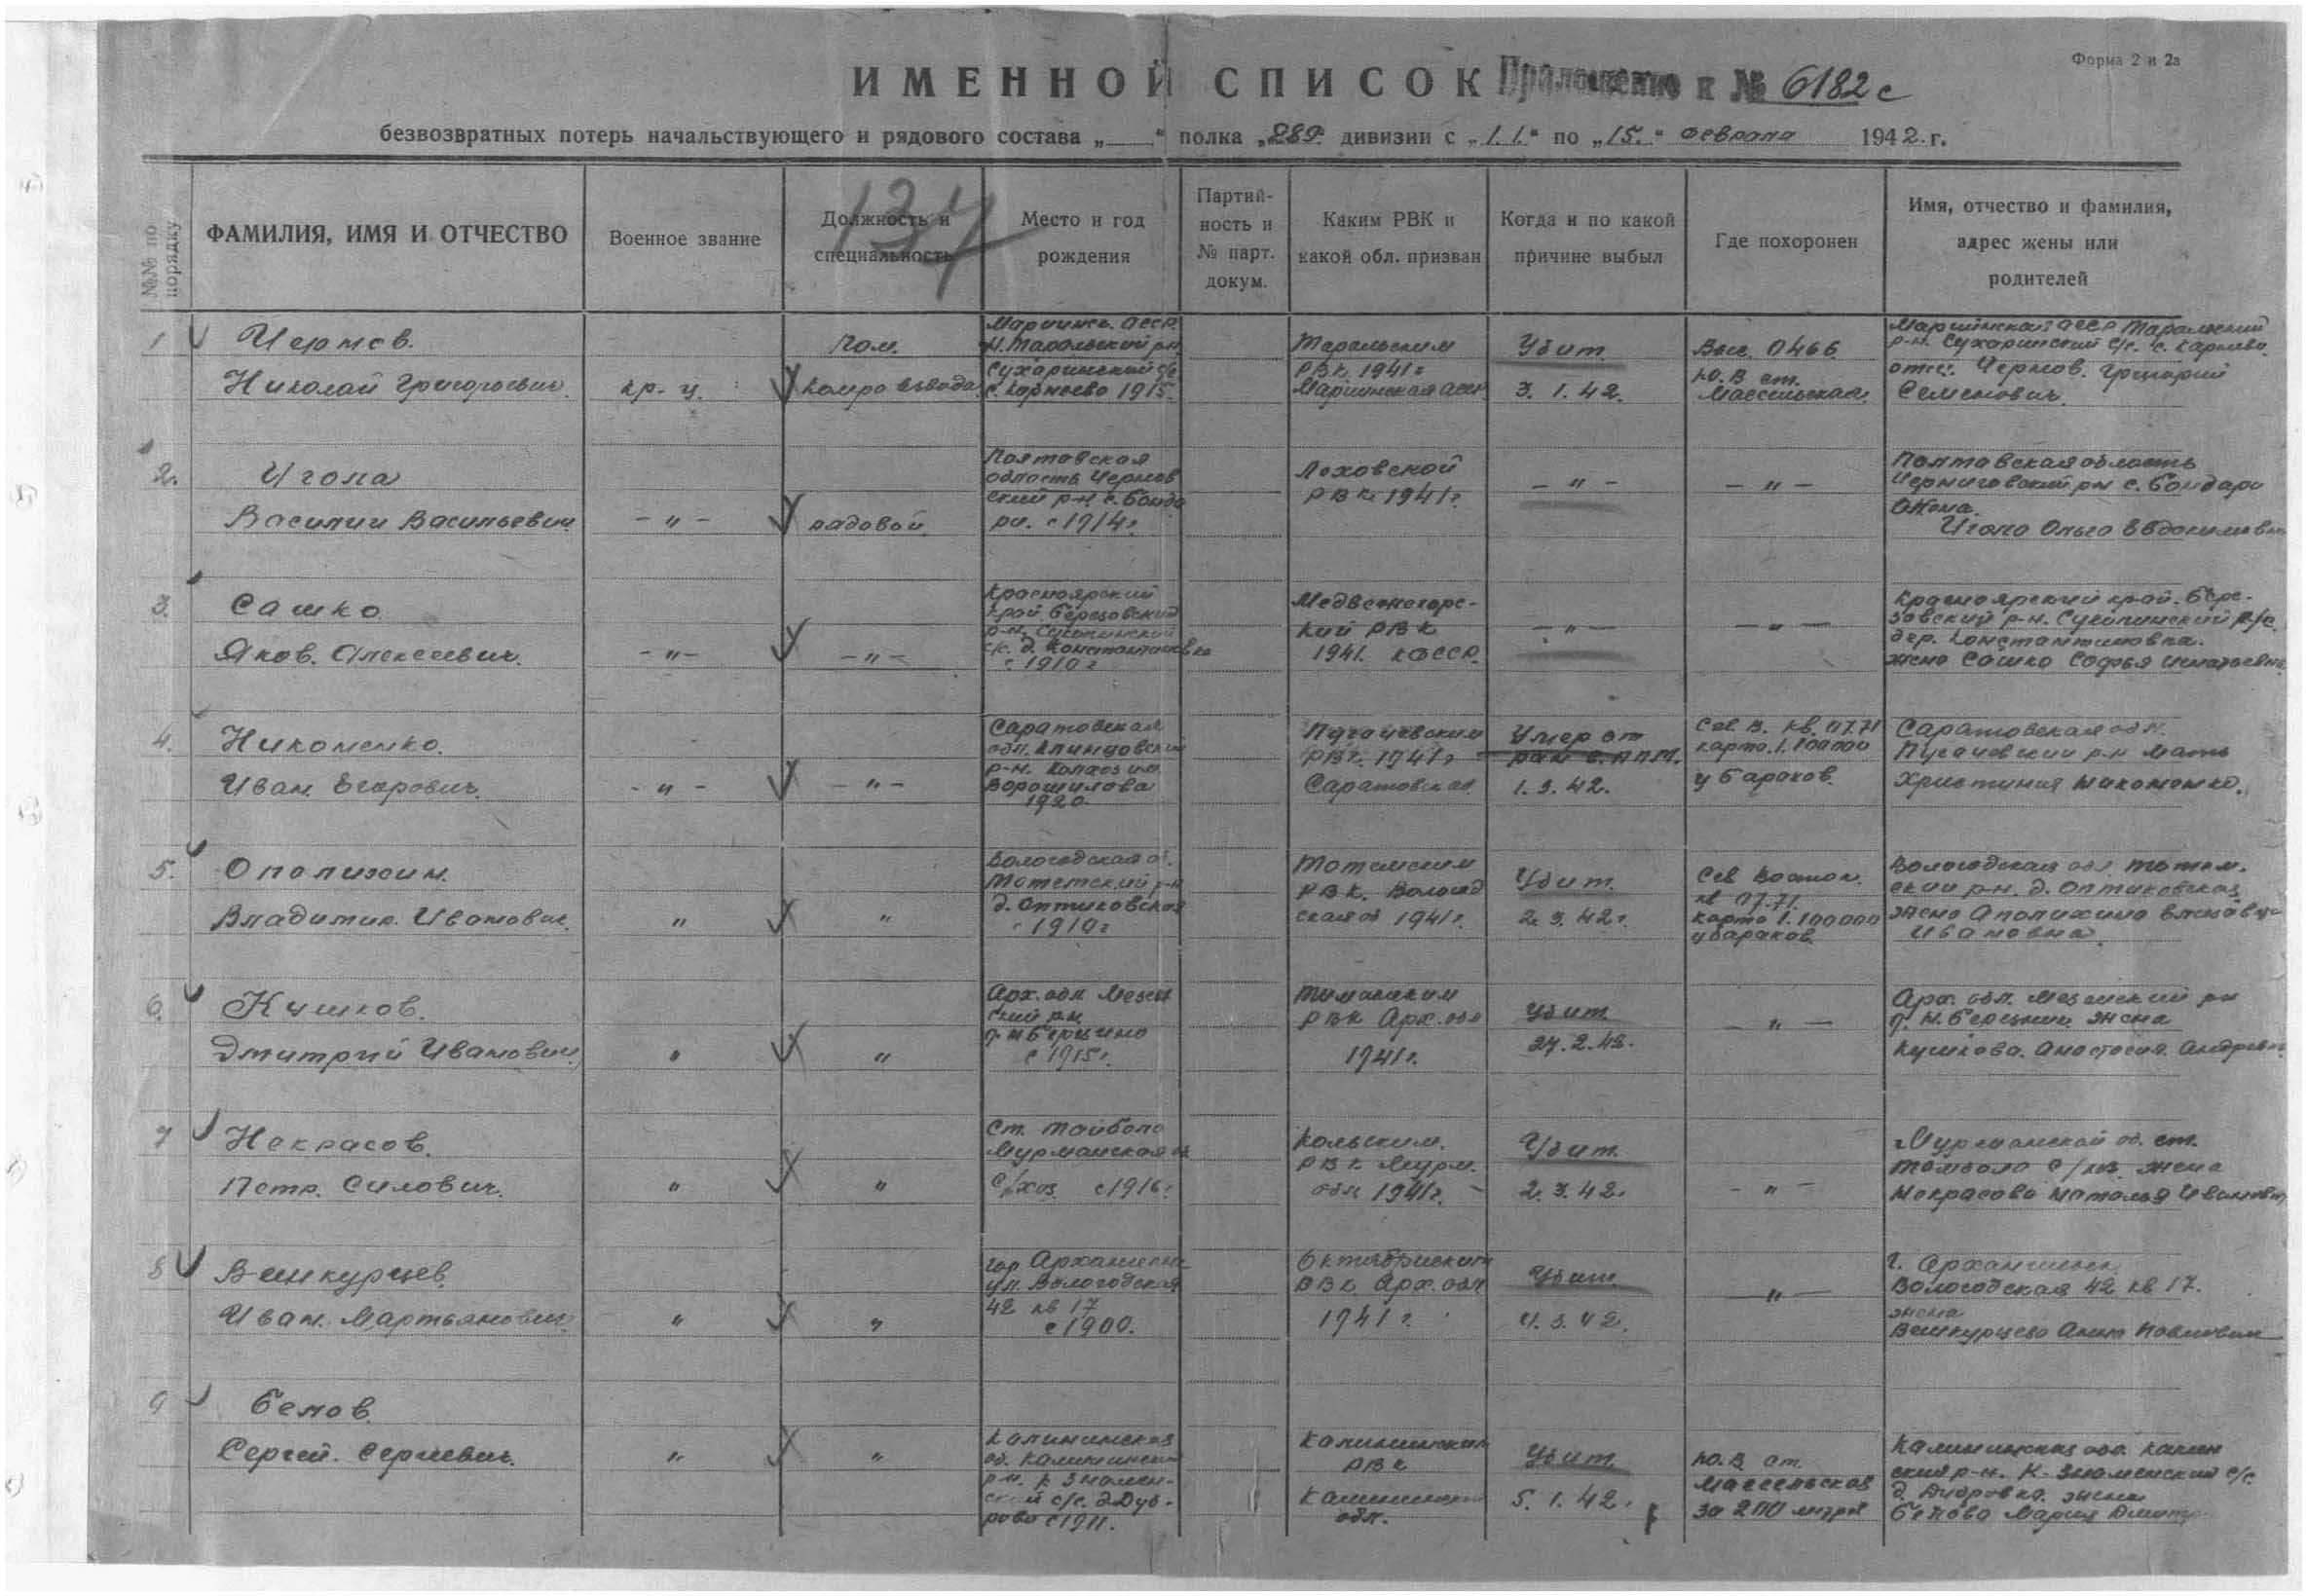 Форма 2 и 2а
ИМЕННОЙ СПИСОК Приложение к № 6182с
безвозвратных потерь начальствующего и рядового состава „ “ полка „289“ дивизии с „1.1.“ по „15.“ февраля 1942 г.
134
№№ по порядку
ФАМИЛИЯ, ИМЯ И ОТЧЕСТВО
Военное звание
Должность и
специальность
Место и год
рождения
Партий-
ность и
№ парт.
докум.
Каким РВК и
какой обл. призван
Когда и по какой
причине выбыл
Где похоронен
Имя, отчество и фамилия,
адрес жены или
родителей
1
Чернов.
Николай Григорьевич.
кр-ц.
Пом.
комро взвода
Мариинск. АССР.
Сухаринский с/с
с. Корнеево 1915.
РВК 1941г
Мариинская АССР.
Убит
3.1.42.
Выс. 0466
Ю.В ст.
Массельская
р-н. Сухаринский с/с. с. Карнеево.
отец. Чернов. Григорий
Семенович.
2.
Угола
Василий Васильевич
- „ -
рядовой.
Полтавская
область Чернов
ский р-н с. Бонда
ри. с 1914г
Лоховской
РВК 1941г.
- „ -
- „ -
Полтавская область
Черниговский рн с. Бондари
Жена.
Угола Ольга Евдокимовна
3.
Сашко
Яков. Алексеевич.
- „ -
- „ -
Красноярский
край. Березовский
р-н. Сухопинский
с/с. д. Константиновка
с 1910г
Медвежегорс-
кий РВК
1941. КФССР.
- „ -
- „ -
Красноярский край. Бере-
зовский р-н.
дер. Константиновка.
жена Сашко Софья Игнатьевна
4.
Никоненко.
Иван. Егорович.
- „ -
- „ -
Саратовская
обл. Клинцовский
р-н. Колхоз им.
Ворошилова
1920.
Пугачевским
РВК. 1941г
Саратовская
Умер от
ран в. ППМ.
1.3.42.
Сев В. кв. 0771
карта. 1.100000
у бараков.
Саратовская обл.
Пугачевский р-н мать
Христиния Никоненко.
5.
Ополихин.
Владимир. Иванович.
„
„
Вологодская об.
Тотемский р-н
д. Оптиковская
с 1910г
Тотемским
РВК. Вологод
ская об 1941г.
Убит.
2.3.42г.
Сев Восток.
кв 0771.
карта 1.100000
у бараков.
Вологодская обл. Тотем.
ский р-н. д. Оптиковская
жена Аполихина Елизавета
Ивановна
6.
Кушков.
Дмитрий Иванович.
„
„
Арх. обл Мезен
ский рн
с 1915г.
РВК Арх. обл
1941г.
Убит
27.2.42.
- „ -
Арх. обл. Мезенский рн
жена
Кушкова. Анастасия. Андреевна
7
Некрасов.
Петр. Силович.
„
„
Ст. Тайбола
Мурманская об
с/хоз. с 1916г
Кольским.
РВК Мурм.
обл 1941г.
Убит.
2.3.42.
- „ -
Мурманской об. ст.
Тайбола с/хоз жена
Некрасова Наталья Ивановна
8
Вешкурцев.
Иван. Мартьянович.
„
„
гор Архангельск
ул. Вологодская
42 кв 17
с 1900.
Октябрьским
РВК Арх. обл
1941г.
Убит.
4.3.42.
- „ -
г. Архангельск
Вологодская 42 кв 17.
жена
Вешкурцева Анна Павловна
9
Белов.
Сергей. Сергеевич.
„
„
Калининская
об. Калининский
р-н. К Знамен-
ский с/с. д Дуб-
рово с 1911.
Калининским
РВК
Калининской
обл.
Убит.
5.1.42.
Ю.В ст.
Массельская
за 200 метров
Калининская обл. Калин
ский р-н. К-Знаменский с/с.
д Дубровка. жена
Белова Мария Дмитр